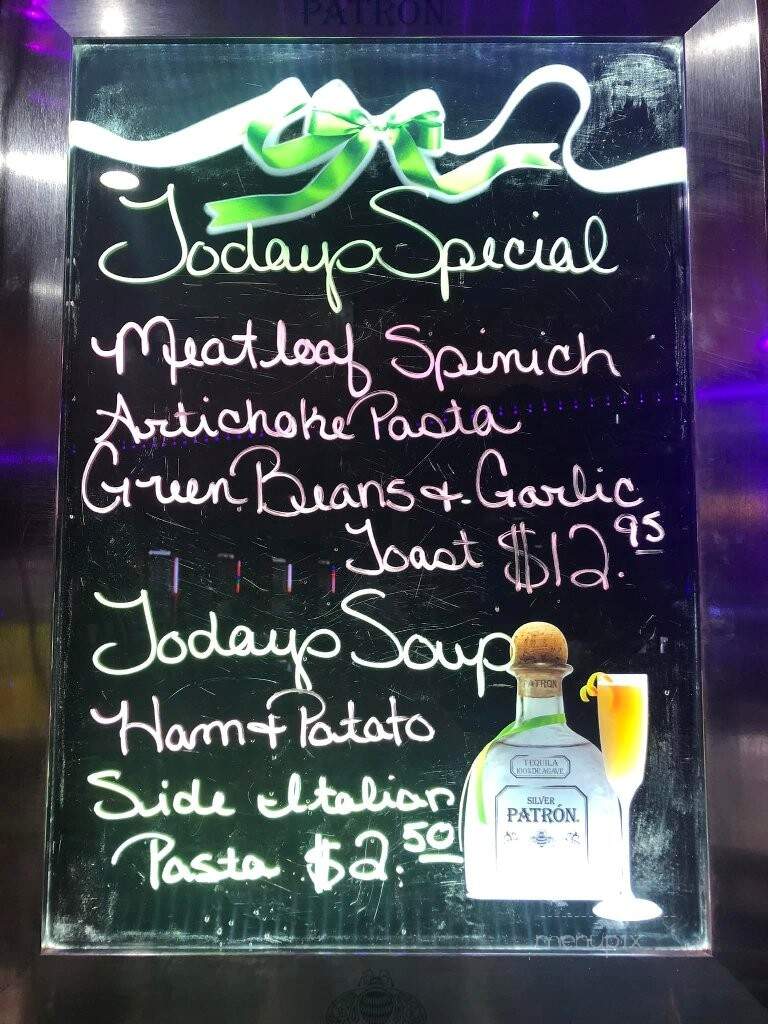 PATRÓN
Todays Special
Meatloaf Spinich
Artichoke Pasta
Green Beans & Garlic
Toast $12.95
Todays Soup
Ham & Patato
Side Italian
Pasta $2.50
PATRÓN
TEQUILA
100% DE AGAVE
SILVER
PATRÓN.
menupix